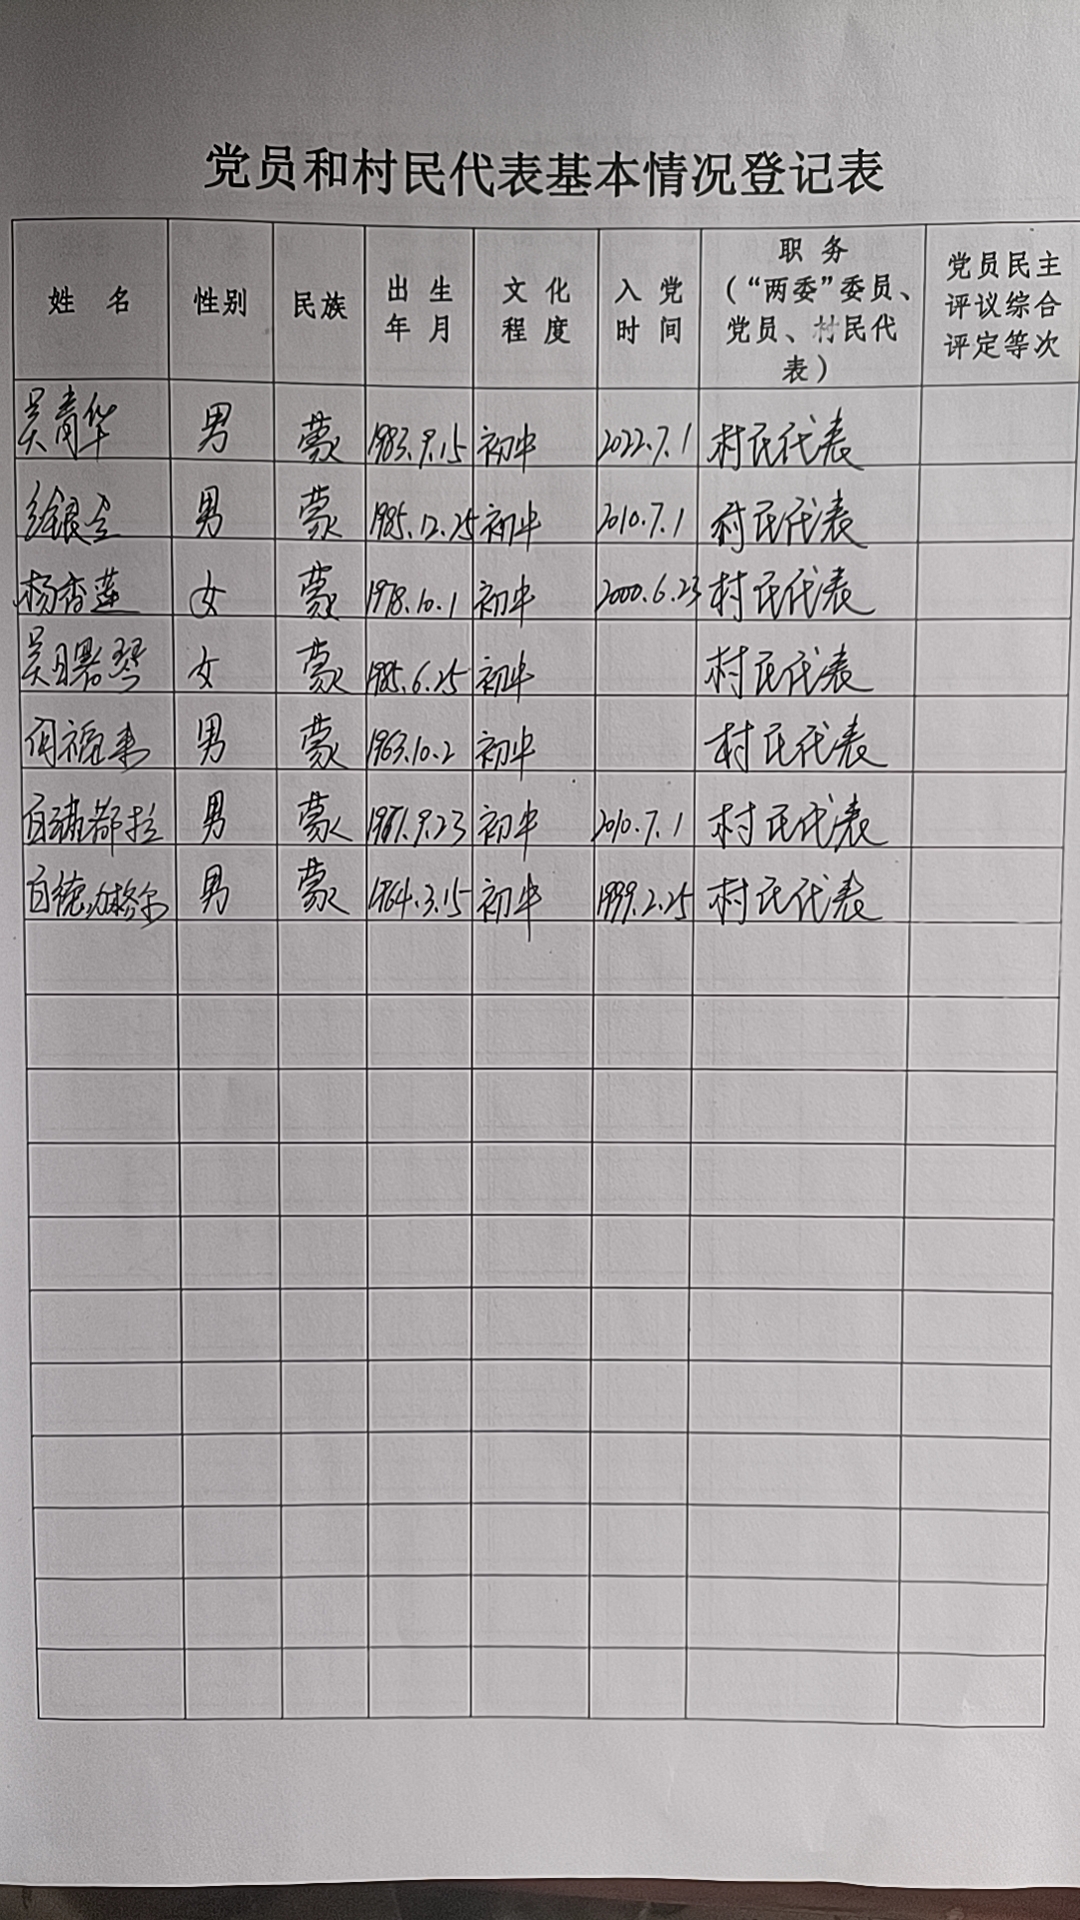 党员和村民代表基本情况登记表
姓 名 性别 民族 出生年月 文化程度 入党时间 职务（“两委”委员、党员、村民代表） 党员民主评议综合评定等次
吴青华 男 蒙 1983.9.15 初中 2022.7.1 村民代表
银 男 蒙 1985.12.25 初中 2010.7.1 村民代表
杨香莲 女 蒙 1978.10.1 初中 2000.6.23 村民代表
吴 琴 女 蒙 1985.6.25 初中 村民代表
福 男 蒙 1963.10.2 初中 村民代表
都拉 男 蒙 9.23 初中 2010.7.1 村民代表
白德力格尔 男 蒙 1964.3.15 初中 1999.2.25 村民代表